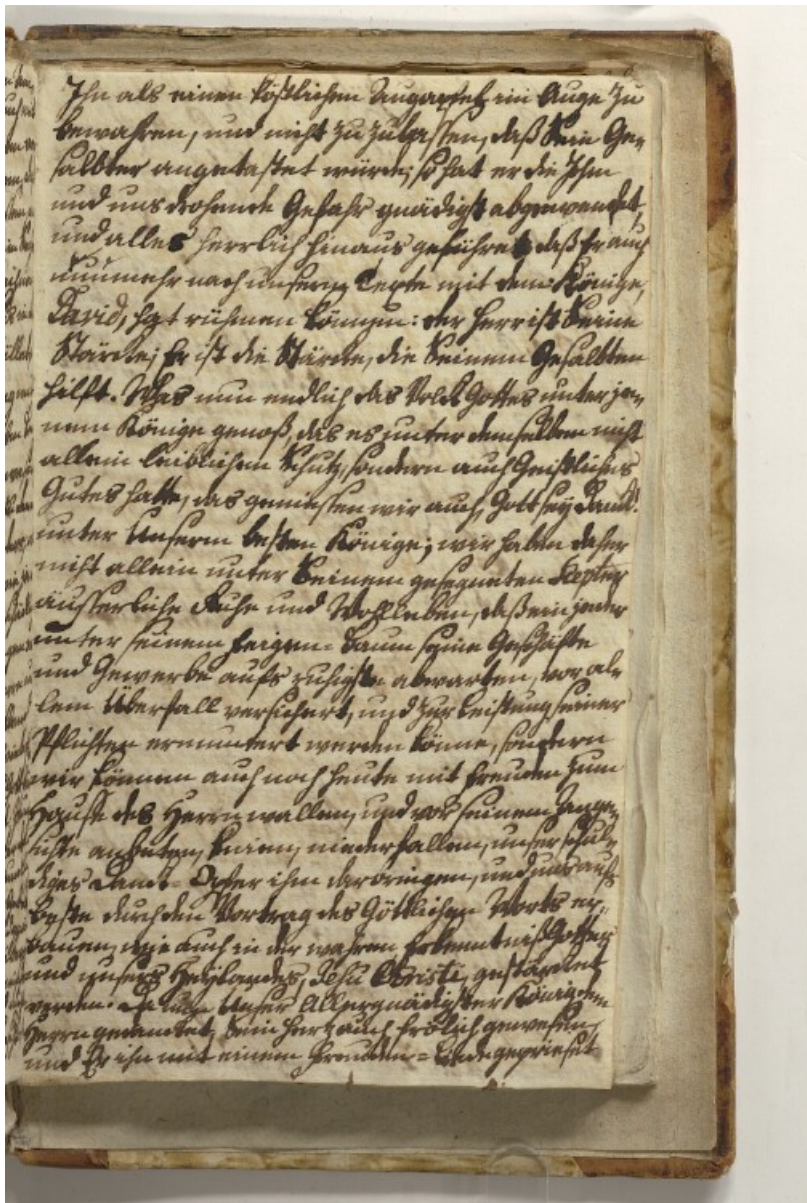 Ihn als einen köstlichen Augapfel im Auge zu
bewahren, und nicht zuzulassen, daß Sein Ge-
salbter angetastet würde; so hat er die Ihm
und uns drohende Gefahr gnädigst abgewendet,
und alles herrlich hinaus geführet, daß Er auch
nunmehr nach unserm Texte mit dem Könige,
David, hat rühmen können: der Herr ist Seine
Stärcke; Er ist die Stärcke, die Seinem Gesalbten
hilft. Was nun endlich das Volck Gottes unter je-
nem Könige genoß, das es unter demselben nicht
allein leiblichen Schutz, sondern auch Geistliches
Gutes hatte, das geniessen wir auch, Gott sey Danck!
unter Unserm besten Könige; wir haben daher
nicht allein unter Seinem gesegneten Scepter
äusserliche Ruhe und Wohlleben, daß ein jeder
unter seinem Feigen-Baum seine Geschäfte
und Gewerbe aufs ruhigste abwarten, vor al-
lem Überfall versichert, und zur Leistung seiner
Pflichten ermuntert werden könne, sondern
wir können auch noch heute mit Freuden zum
Hause des Herrn wallen, und vor seinem Ange-
sichte anbeten, knien, niederfallen, unser schul-
diges Danck-Opfer ihm darbringen, und uns aufs
beste durch den Vortrag des Göttlichen Worts er-
bauen, wie auch in der wahren Erkenntniß Gottes
und unsers Heylandes, Jesu Christi, gestärcket
werden. Da nun Unser Allergnädigster König dem
Herrn gedancket, Sein Hertz auch frölich gewesen,
und Er ihn mit einem Freuden-Liede gepriesen